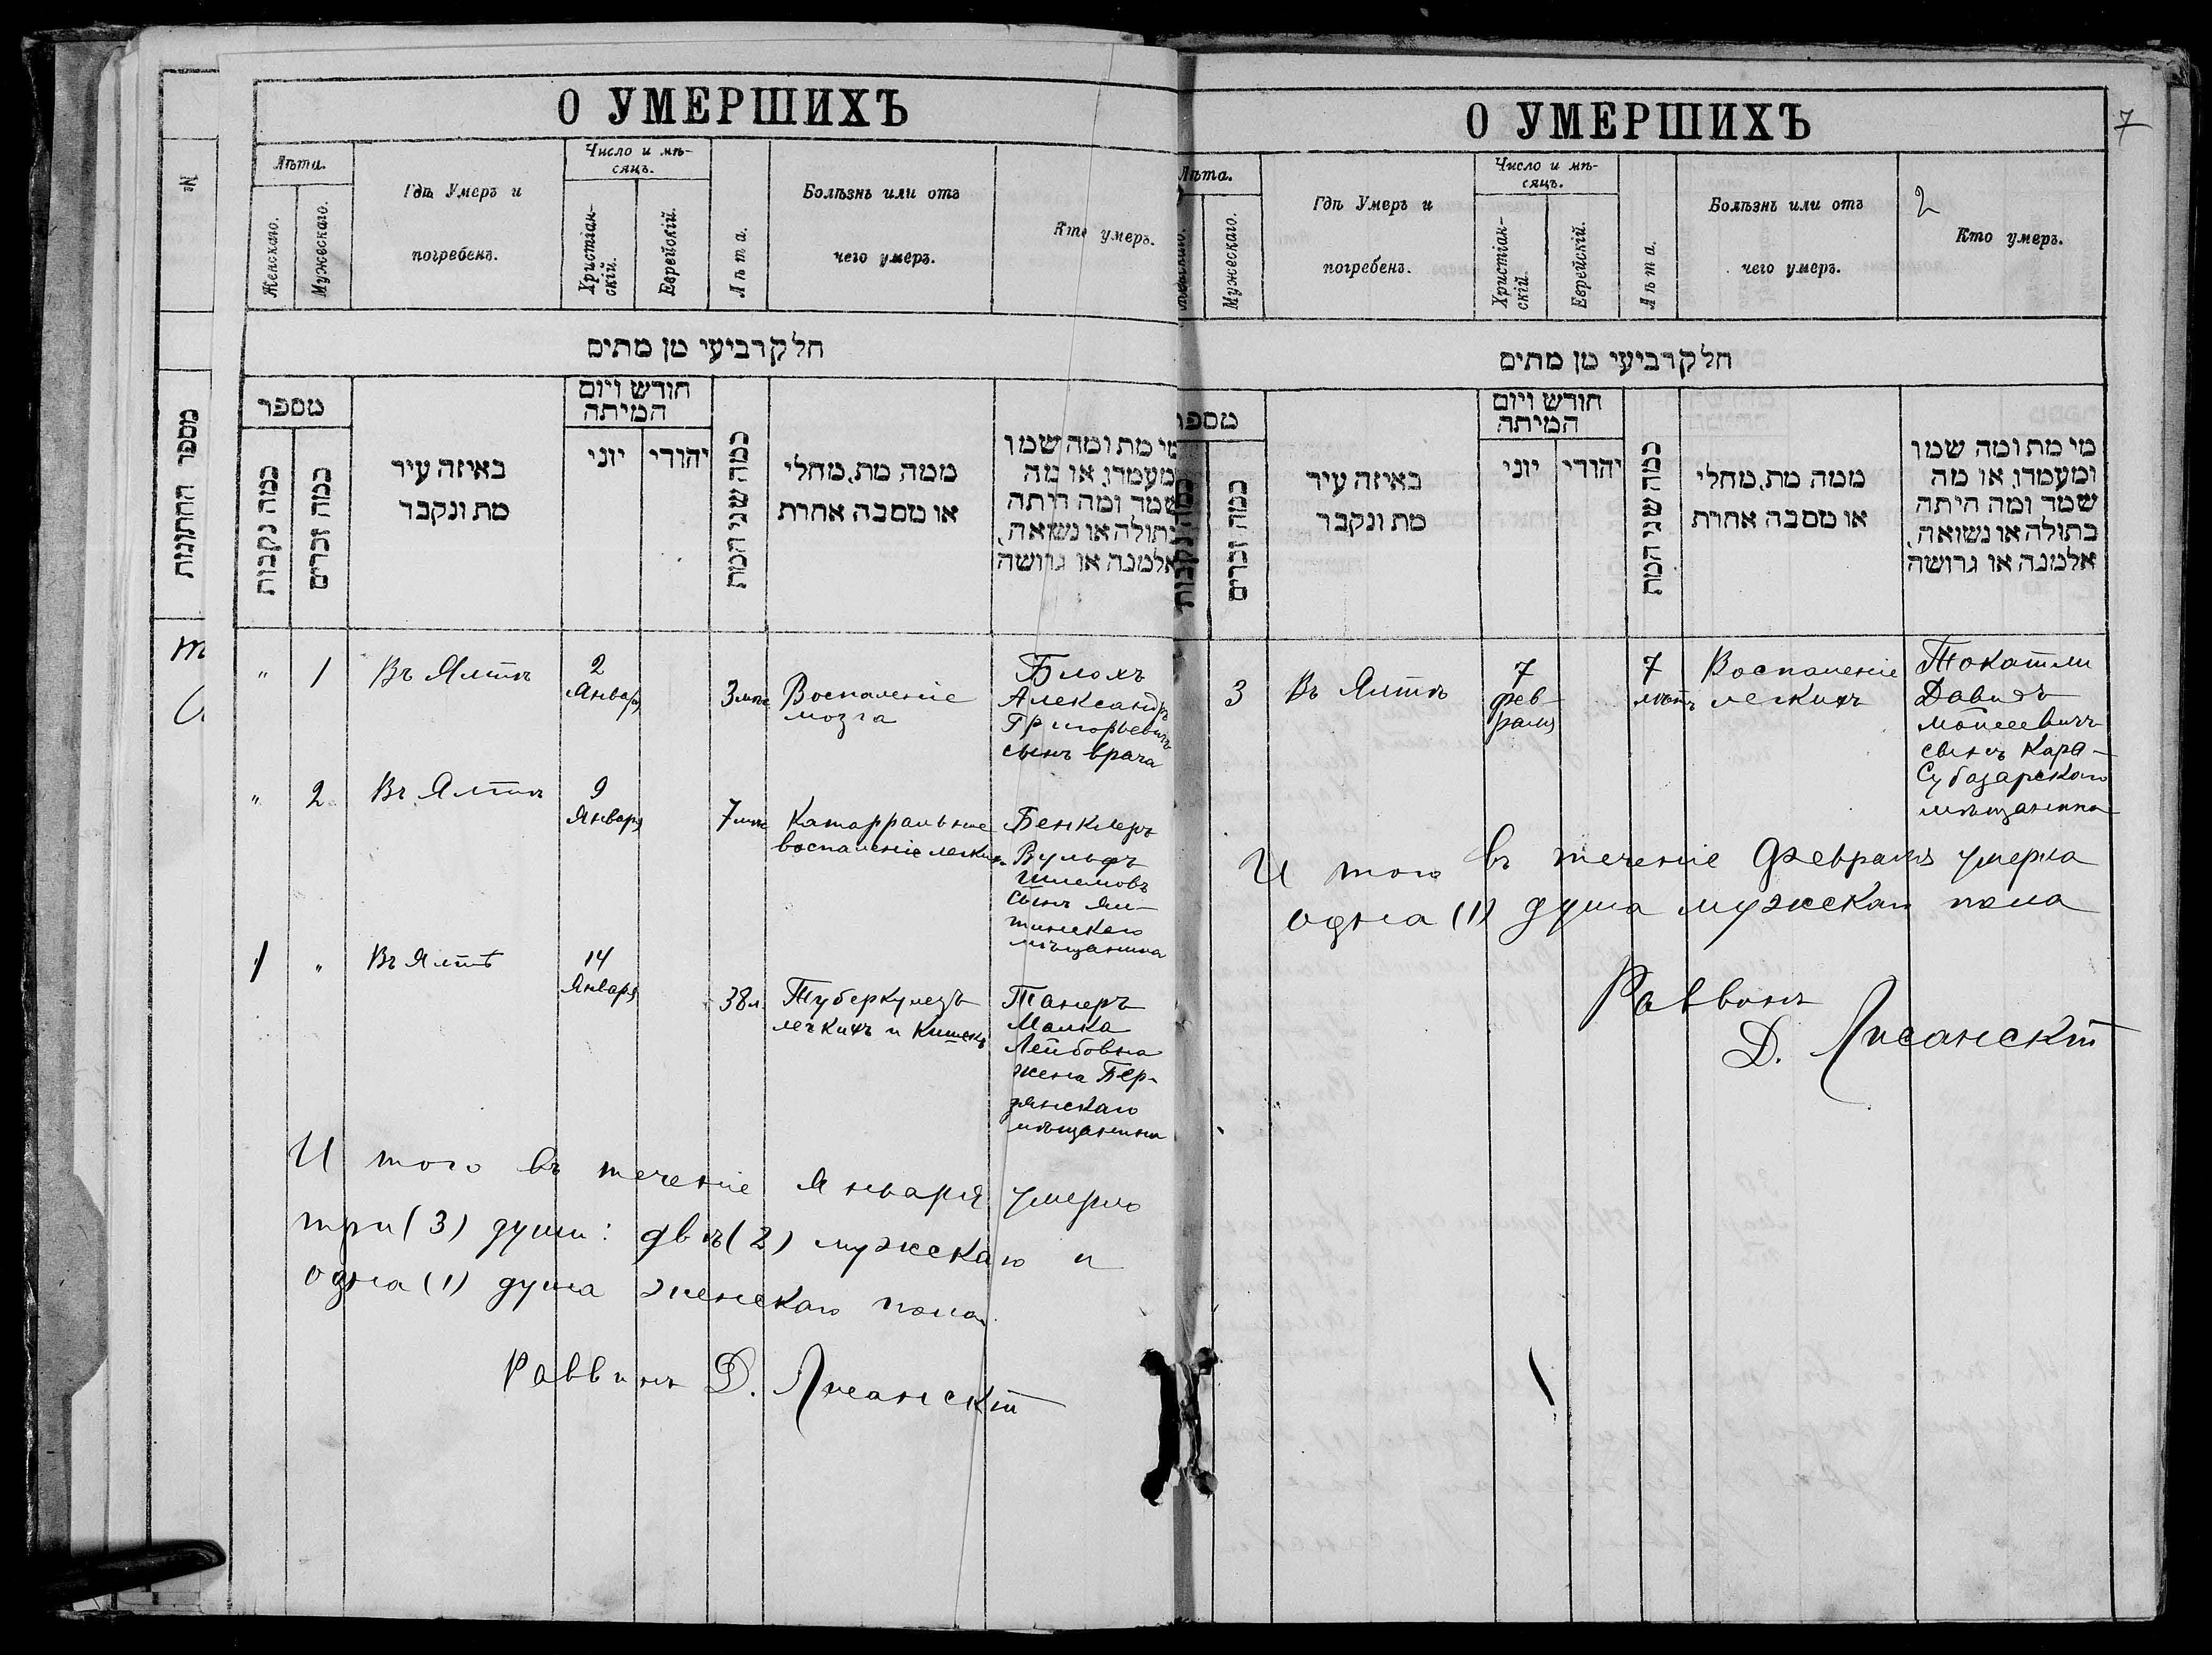 О УМЕРШИХЪ
№
Лѣта.
Женскаго.
Мужескаго.
Гдѣ Умеръ и
погребенъ.
Число и мѣ-
сяцъ.
Христіан-
скій.
Еврейскій.
Лѣта.
Болѣзнь или отъ
чего умеръ.
Кто умеръ.
חלק רביעי מן מתים
מספר החתונות
מספר
כמה נקבות
כמה זכרים
באיזה עיר
מת ונקבר
חודש ויום
המיתה
יוני
יהודי
כמה שני המת
ממה מת, מחלי
או מסבה אחרת
מי מת ומה שמו
ומעמדו, או מה
שמד ומה היתה
בתולה או נשואה,
אלמנה או גרושה
" 1 Въ Ялтѣ
2
Январ
3 мѣс
Воспаленіе
мозга
Блохъ
Александръ
Григорьевичъ
сынъ врача
" 2 Въ Ялтѣ
9
Января
7 мѣс
Катарральное
воспаленіе легкихъ
Бенклеръ
Вульфъ
Шлемовъ
сынъ Ял-
тинскаго
мѣщанина
1 " Въ Ялтѣ
14
Января
38 л.
Туберкулезъ
легкихъ и кишекъ
Танеръ
Малка
Лейбовна
жена Бер-
дянскаго
мѣщанина
И того въ теченіе Января умерло
три (3) души: двѣ (2) мужскаго и
одна (1) душа женскаго пола.
Раввинъ Д. Лисанскій
О УМЕРШИХЪ
7
Лѣта.
Женскаго.
Мужескаго.
Гдѣ Умеръ и
погребенъ.
Число и мѣ-
сяцъ.
Христіан-
скій.
Еврейскій.
Лѣта.
Болѣзнь или отъ
чего умеръ.
2
Кто умеръ.
חלק רביעי מן מתים
מספר
כמה נקבות
כמה זכרים
באיזה עיר
מת ונקבר
חודש ויום
המיתה
יוני
יהודי
כמה שני המת
ממה מת, מחלי
או מסבה אחרת
מי מת ומה שמו
ומעמדו, או מה
שמד ומה היתה
בתולה או נשואה,
אלמנה או גרושה
3 Въ Ялтѣ
7
фев-
раля
7
лѣтъ
Воспаленіе
легкихъ
Токатли
Давидъ
Мойсеевичъ
сынъ Кара-
субазарскаго
мѣщанина
И того въ теченіе Февраля умерла
одна (1) душа мужскаго пола
Раввинъ
Д. Лисанскій